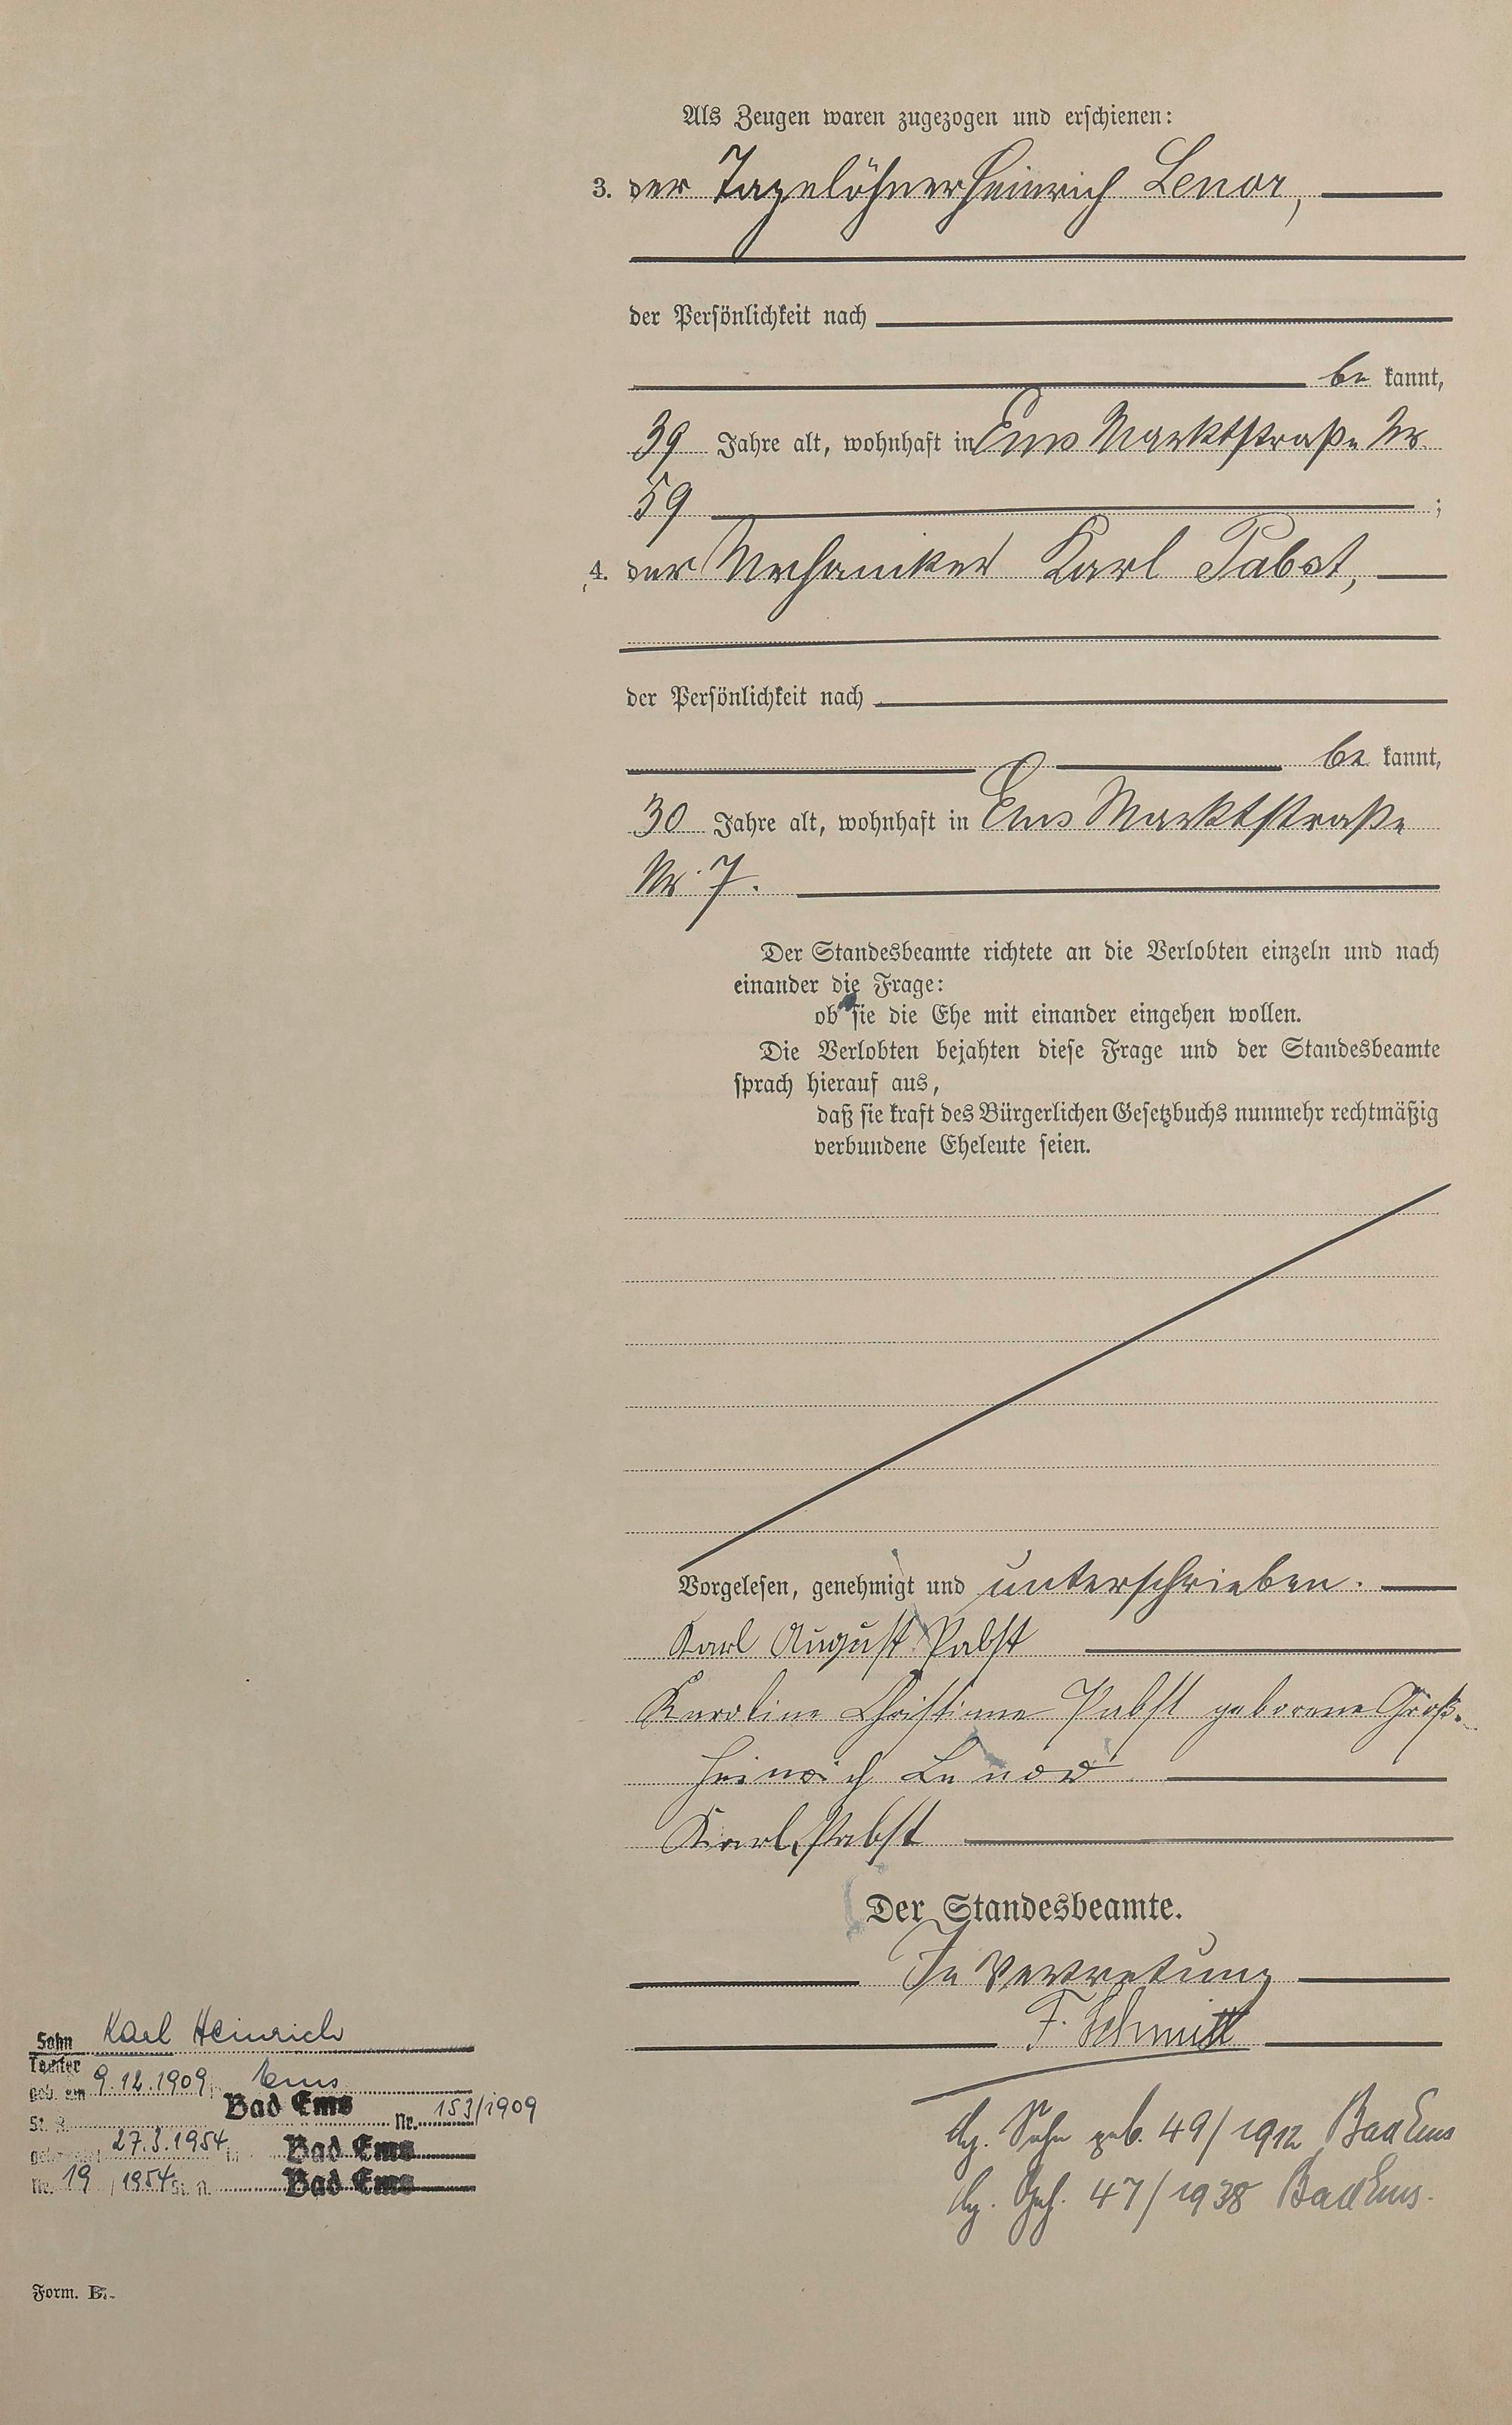 Als Zeugen waren zugezogen und erschienen:
3. der Tagelöhner Heinrich Lenor,
der Persönlichkeit nach
be kannt,
39 Jahre alt, wohnhaft in Ems Marktstraße Nr.
59 ;
4. der Mechaniker Karl Pabst,
der Persönlichkeit nach
be kannt,
30 Jahre alt, wohnhaft in Ems Marktstraße
Nr. 7.
Der Standesbeamte richtete an die Verlobten einzeln und nach
einander die Frage:
ob sie die Ehe mit einander eingehen wollen.
Die Verlobten bejahten diese Frage und der Standesbeamte
sprach hierauf aus,
daß sie kraft des Bürgerlichen Gesetzbuchs nunmehr rechtmäßig
verbundene Eheleute seien.
Vorgelesen, genehmigt und unterschrieben.
Karl August Pabst
Karoline Christiane Pabst geborene Groß.
Heinrich Lenor
Karl Pabst
Der Standesbeamte.
In Vertretung
F. Schmitt
Sohn Karl Heinrich
Tochter
geb. am 9.12.1909 Ems
St. A. Bad Ems Nr. 153/1909
27.3.1954 in Bad Ems
Nr. 19 / 1954 St. A. Bad Ems
Sohn geb. 49/1912 Bad Ems
47/1938 Bad Ems.
Form. B.